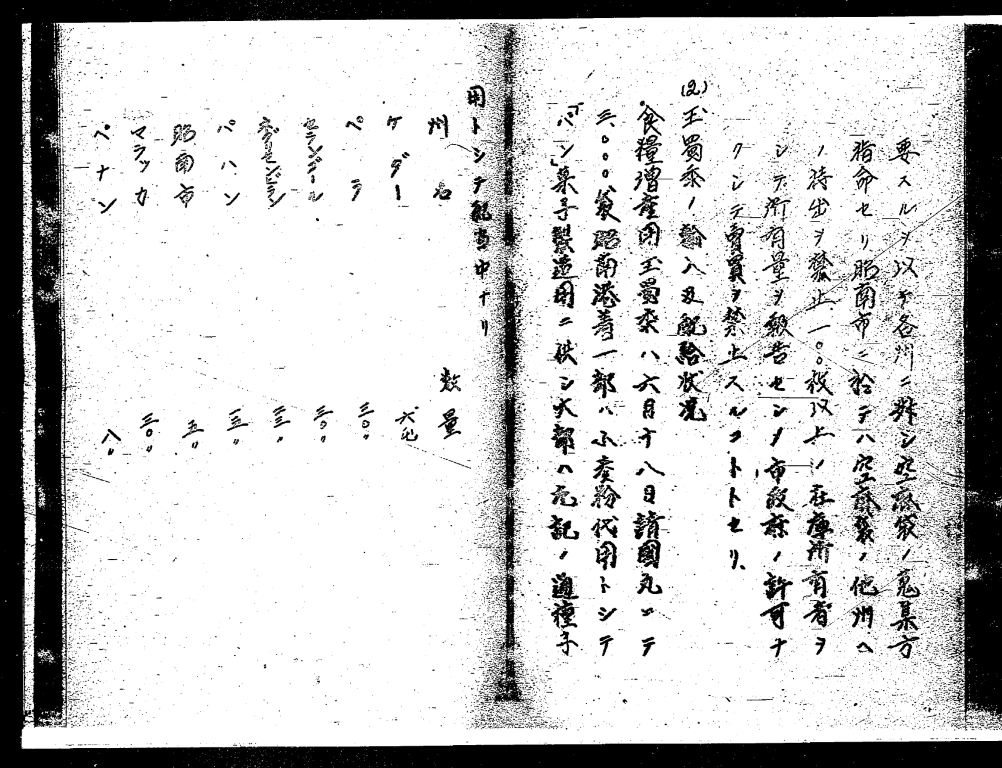 要スルヲ以テ各州ニ対シ空麻袋ノ蒐集方
指命セリ昭南市ニ於テハ空麻袋ノ他州ヘ
ノ持出ヲ禁止一〇〇枚以上ノ在庫所有者ヲ
シテ所有量ヲ報告セシメ市政庁ノ許可ナ
クシテ売買ヲ禁止スルコトトセリ、
(2)玉蜀黍ノ輸入及配給状況
食糧増産用玉蜀黍ハ六月十八日請国丸ニテ
三〇〇〇袋昭南港着一部ハ小麦粉代用トシテ
「パン」菓子製造用ニ供シ大部ハ左記ノ通種子
用トシテ配当中ナリ
州名 数量
ケダー
ペラ 三〇〃
セランゴール 三〇〃
ネグリセンビラン 三三〃
パハン 一五〃
昭南市 五〃
マラッカ 三〇〃
ペナン 八〃